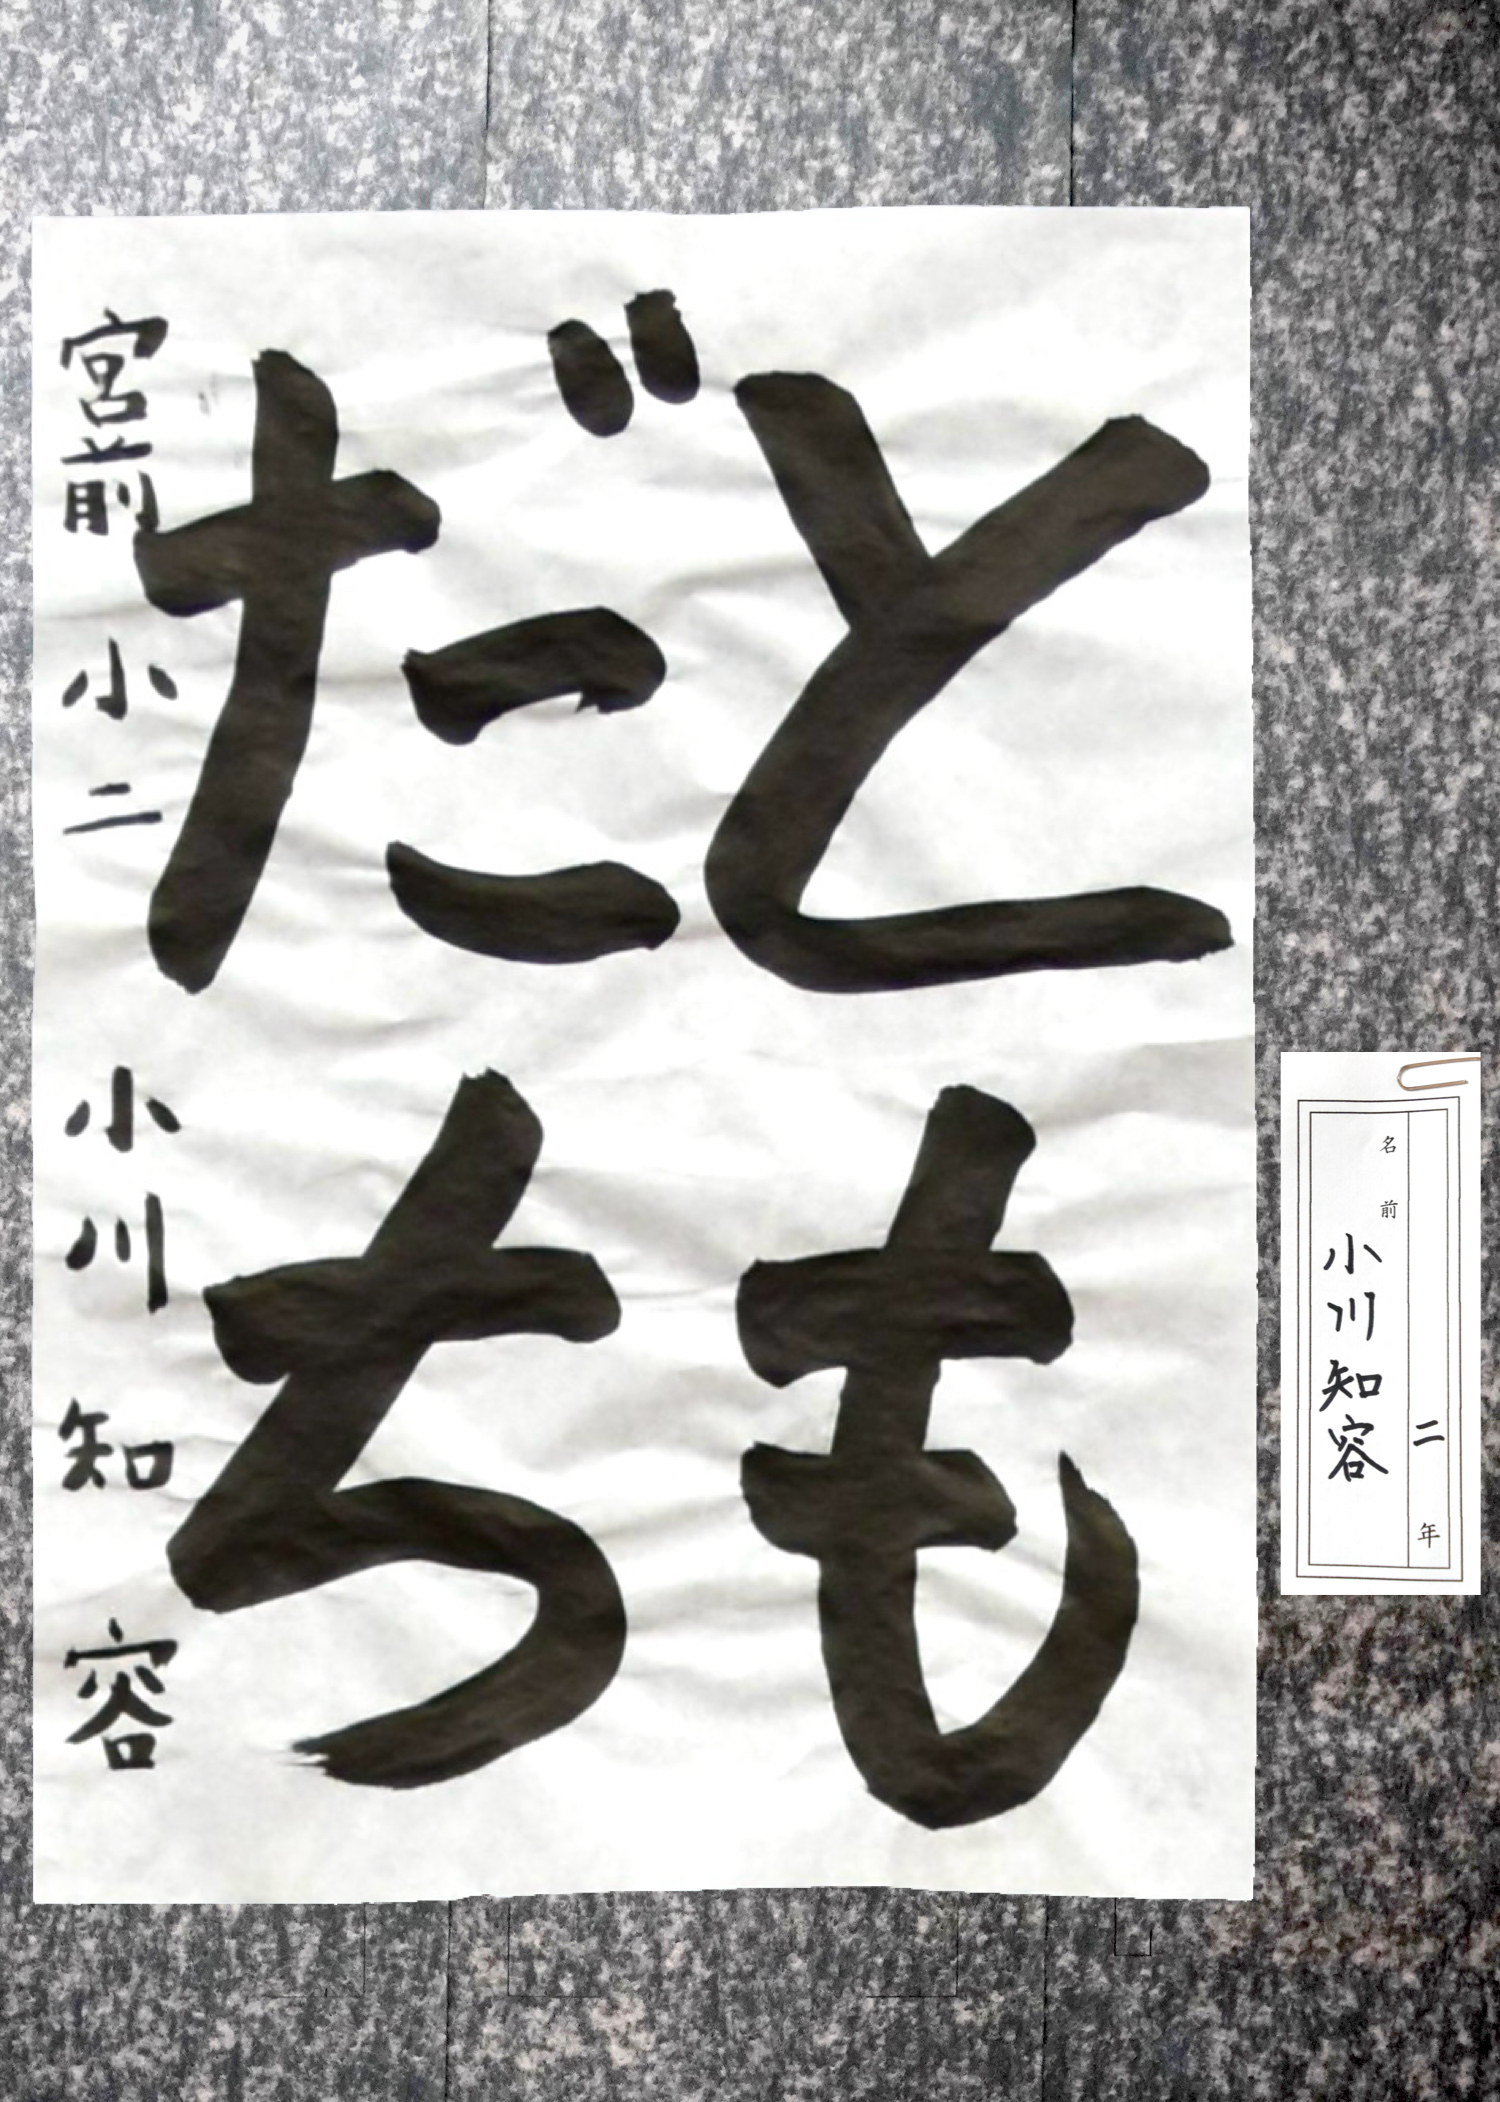 とも
だち
宮前小二 小川知容
二年
名前
小川知容